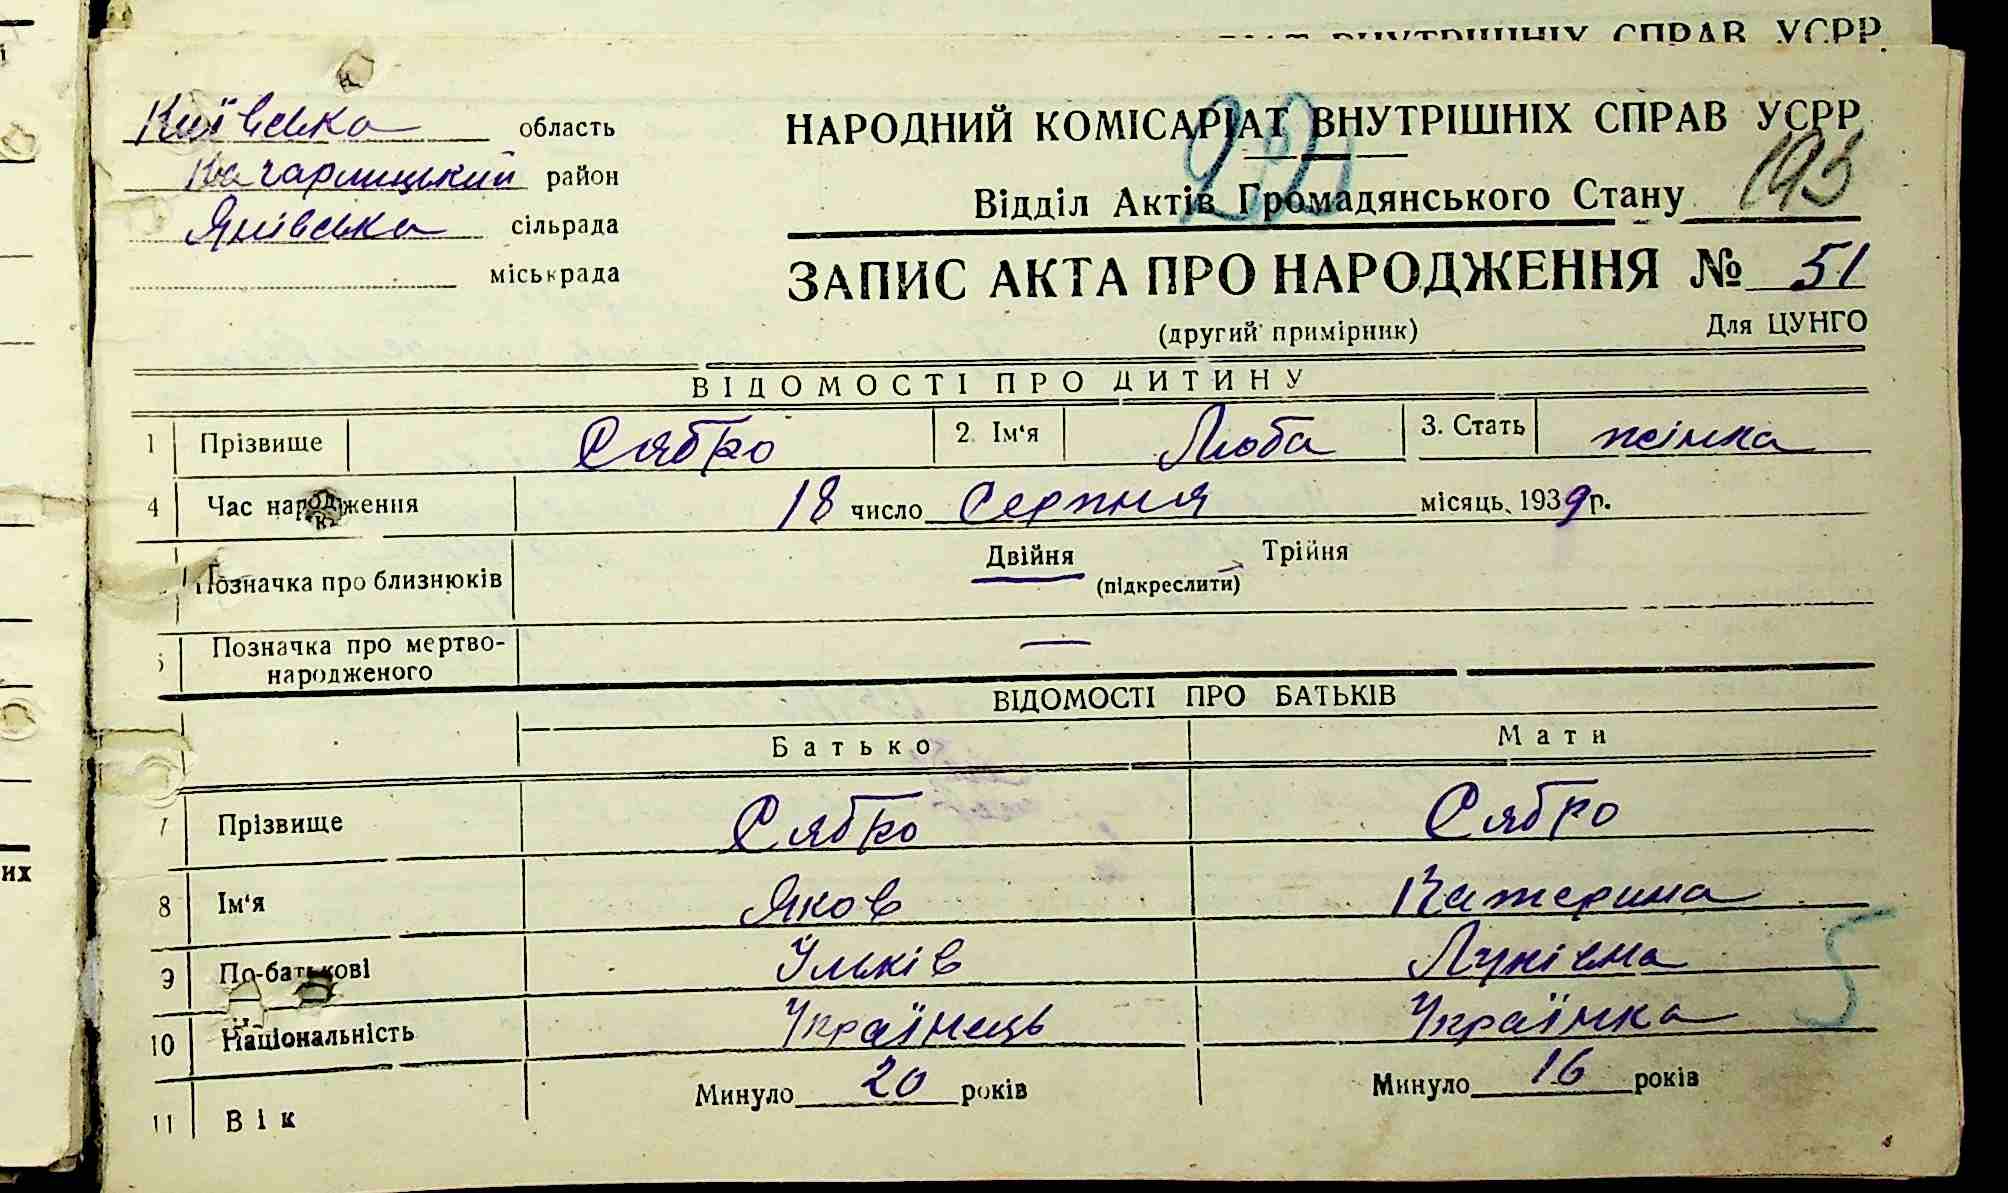 ВНУТРІШНІХ СПРАВ УСРР
Київська область
Кагарлицький район
Янівська сільрада
міськрада
НАРОДНИЙ КОМІСАРІАТ ВНУТРІШНІХ СПРАВ УСРР
Відділ Актів Громадянського Стану 193
ЗАПИС АКТА ПРО НАРОДЖЕННЯ № 51
(другий примірник) Для ЦУНГО
ВІДОМОСТІ ПРО ДИТИНУ
1 Прізвище Сябро 2. Ім'я Люба 3. Стать жінка
4 Час народження 18 число Серпня місяць, 1939 р.
Позначка про близнюків Двійня Трійня
(підкреслити)
Позначка про мертво-
народженого —
ВІДОМОСТІ ПРО БАТЬКІВ
Батько Мати
7 Прізвище Сябро Сябро
8 Ім'я Яков Катерина
9 По-батькові
10 Національність Українець Українка
11 Вік Минуло 20 років Минуло 16 років
их
5